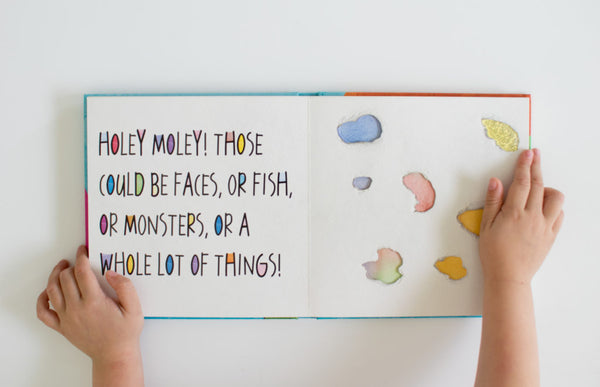 HOLEY MOLEY! THOSE
COULD BE FACES, OR FISH,
OR MONSTERS, OR A
WHOLE LOT OF THINGS!